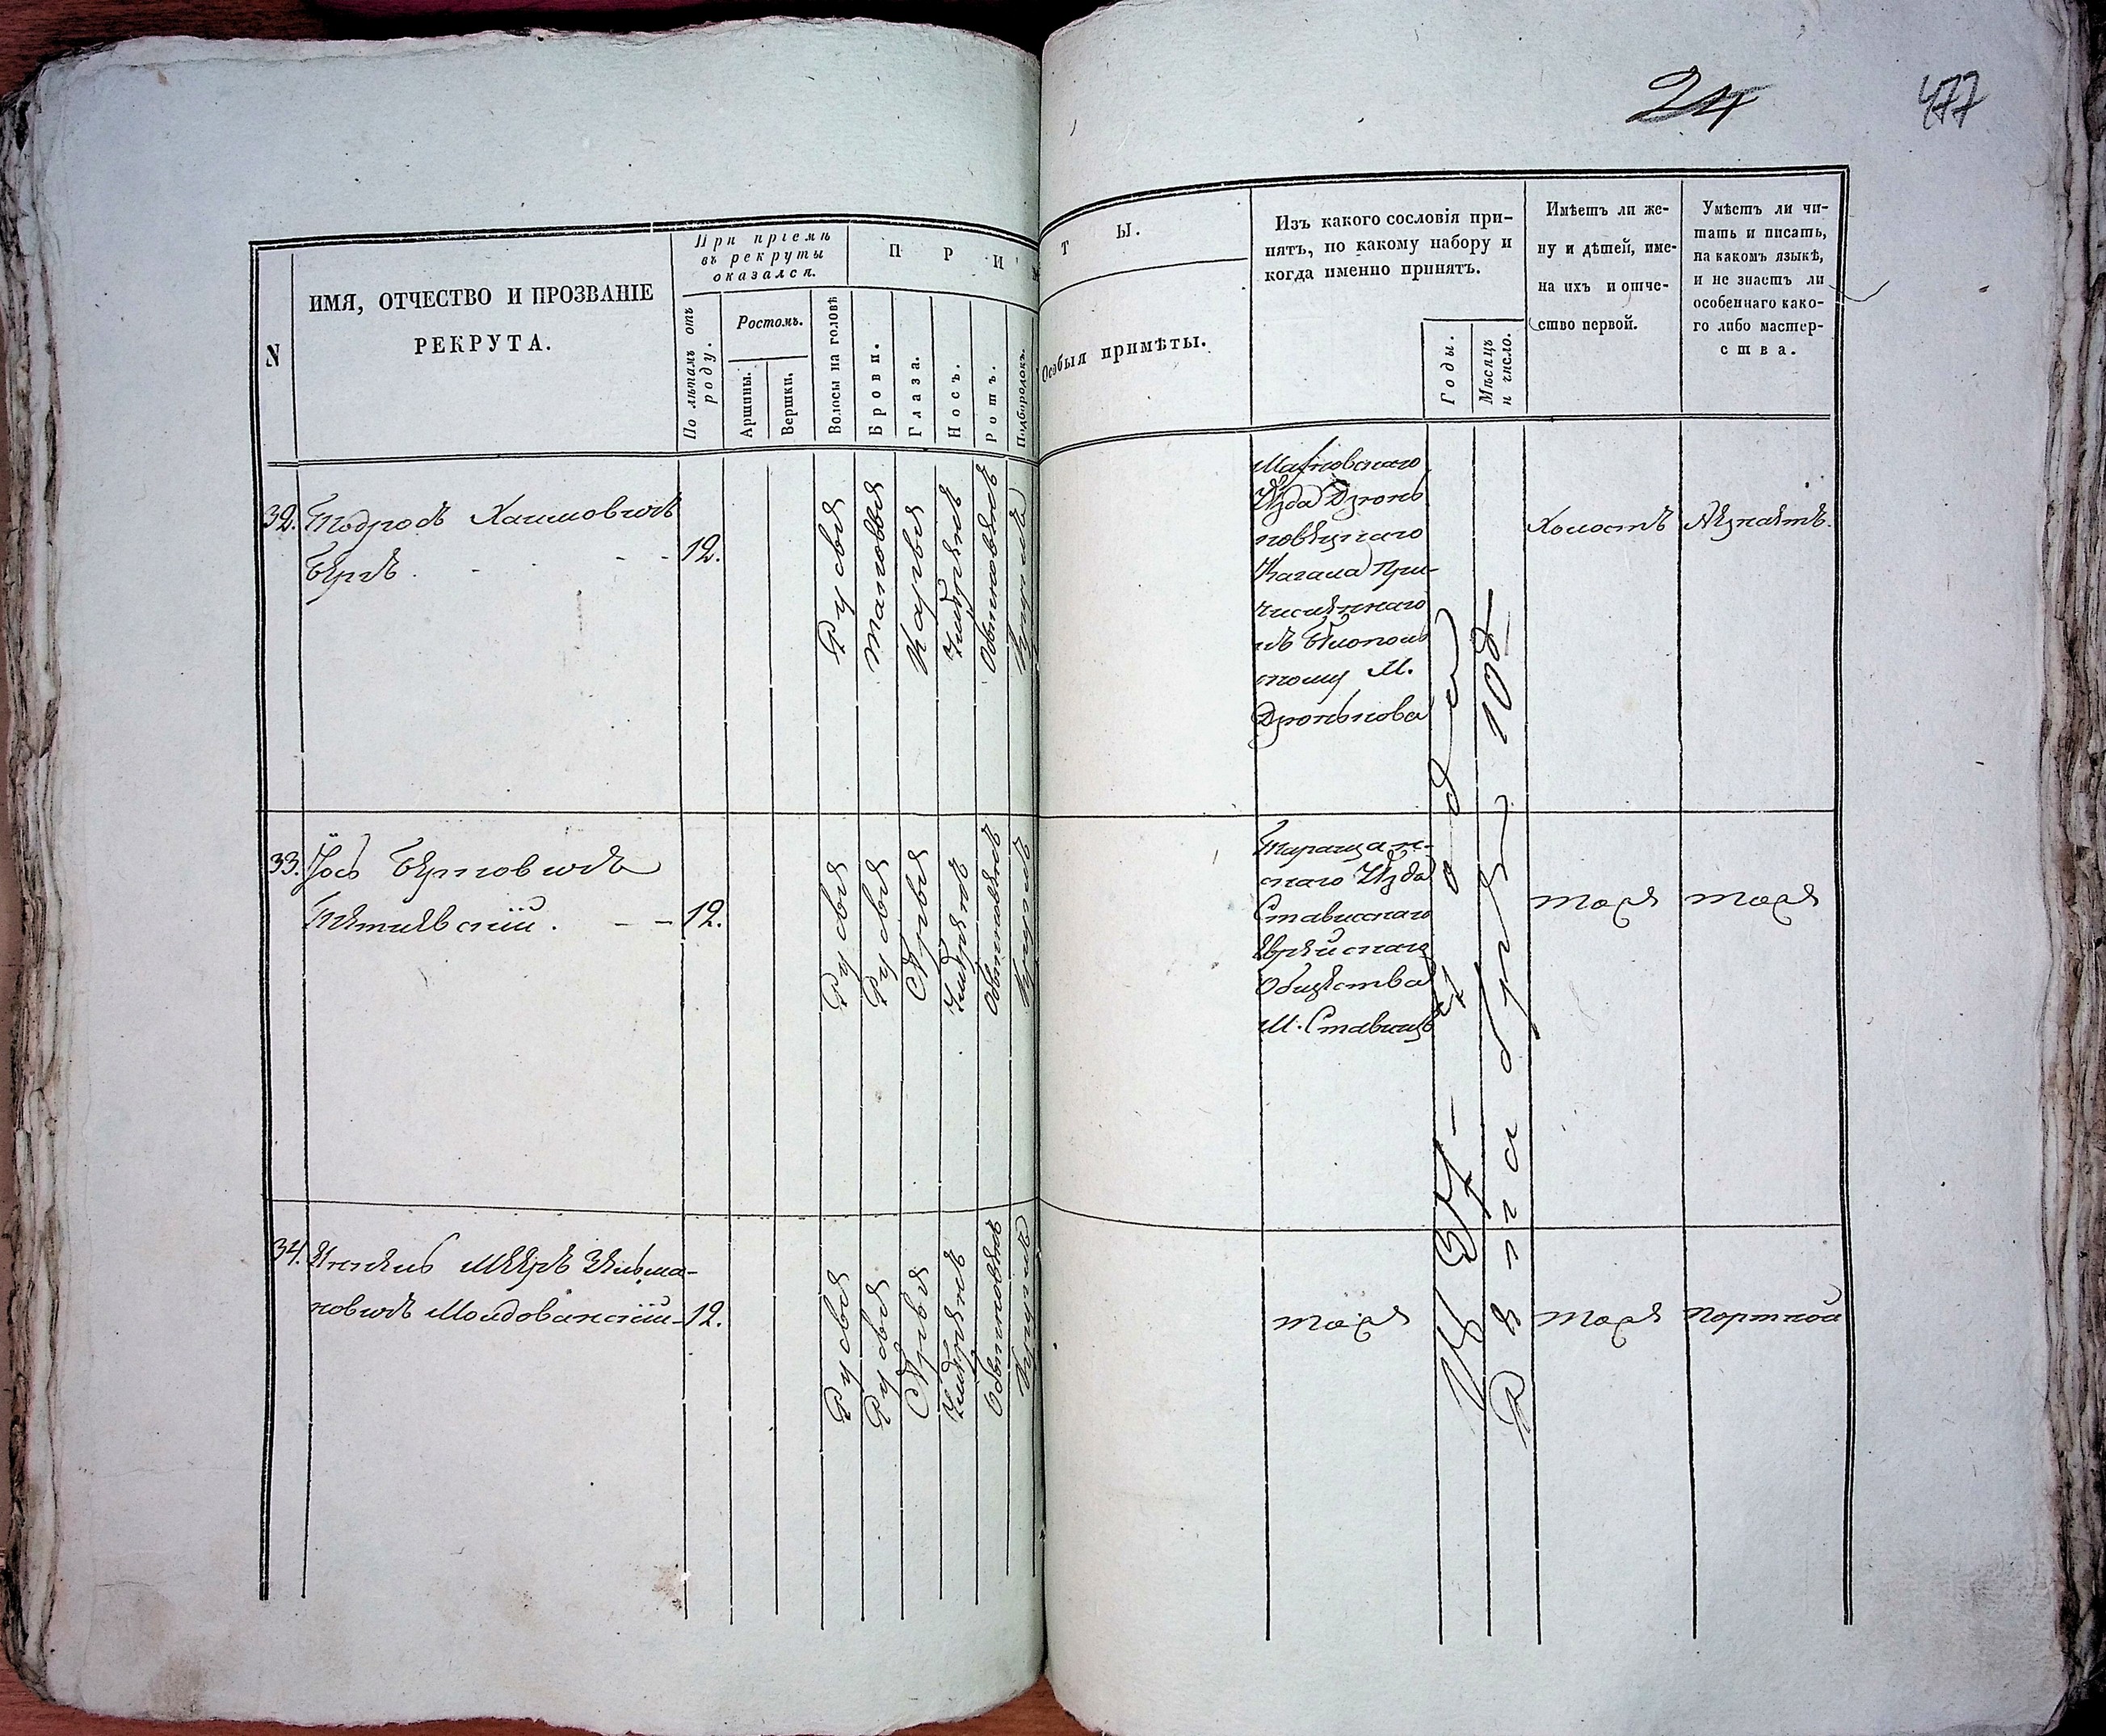 24
477
N
ИМЯ, ОТЧЕСТВО И ПРОЗВАНІЕ
РЕКРУТА.
При пріемѣ
въ рекруты
оказался.
По лѣтамъ отъ
роду.
Ростомъ.
Аршины.
Вершки.
П Р И М
Волосы на головѣ
Брови.
Глаза.
Носъ.
Ротъ.
Подбородокъ.
Т Ы.
Особыя примѣты.
Изъ какого сословія при-
нятъ, по какому набору и
когда именно принятъ.
Годы.
Мѣсяцъ
и число.
Имѣетъ ли же-
ну и дѣтей, име-
на ихъ и отче-
ство первой.
Умѣетъ ли чи-
тать и писать,
на какомъ языкѣ,
и не знаетъ ли
особеннаго како-
го либо мастер-
ства.
32.
Тодросъ Хаимовичъ
Беркъ
12.
Русыя
Таковыя
Карыя
Умѣренъ
Обыкновененъ
Круглъ
Уѣзда Дзюнь
ковецкаго
Кагала При-
численнаго
къ Бѣлополь
скому М.
Дзюнькова
Холостъ
Незнаетъ.
33.
Іось Берковичъ
12.
Русыя
Русыя
Сѣрыя
Умѣренъ
Обыкновененъ
Круглъ
Таращан-
скаго Уѣзда
Ставискаго
Еврейскаго
Общества
М. Ставищъ
тоже
тоже
34.
Мееръ Зельма-
новичъ Молдованскій
12.
Русыя
Русыя
Сѣрыя
Умѣренъ
Обыкновененъ
Круглъ
тоже
тоже
портной
1837 года
Декабря 10д